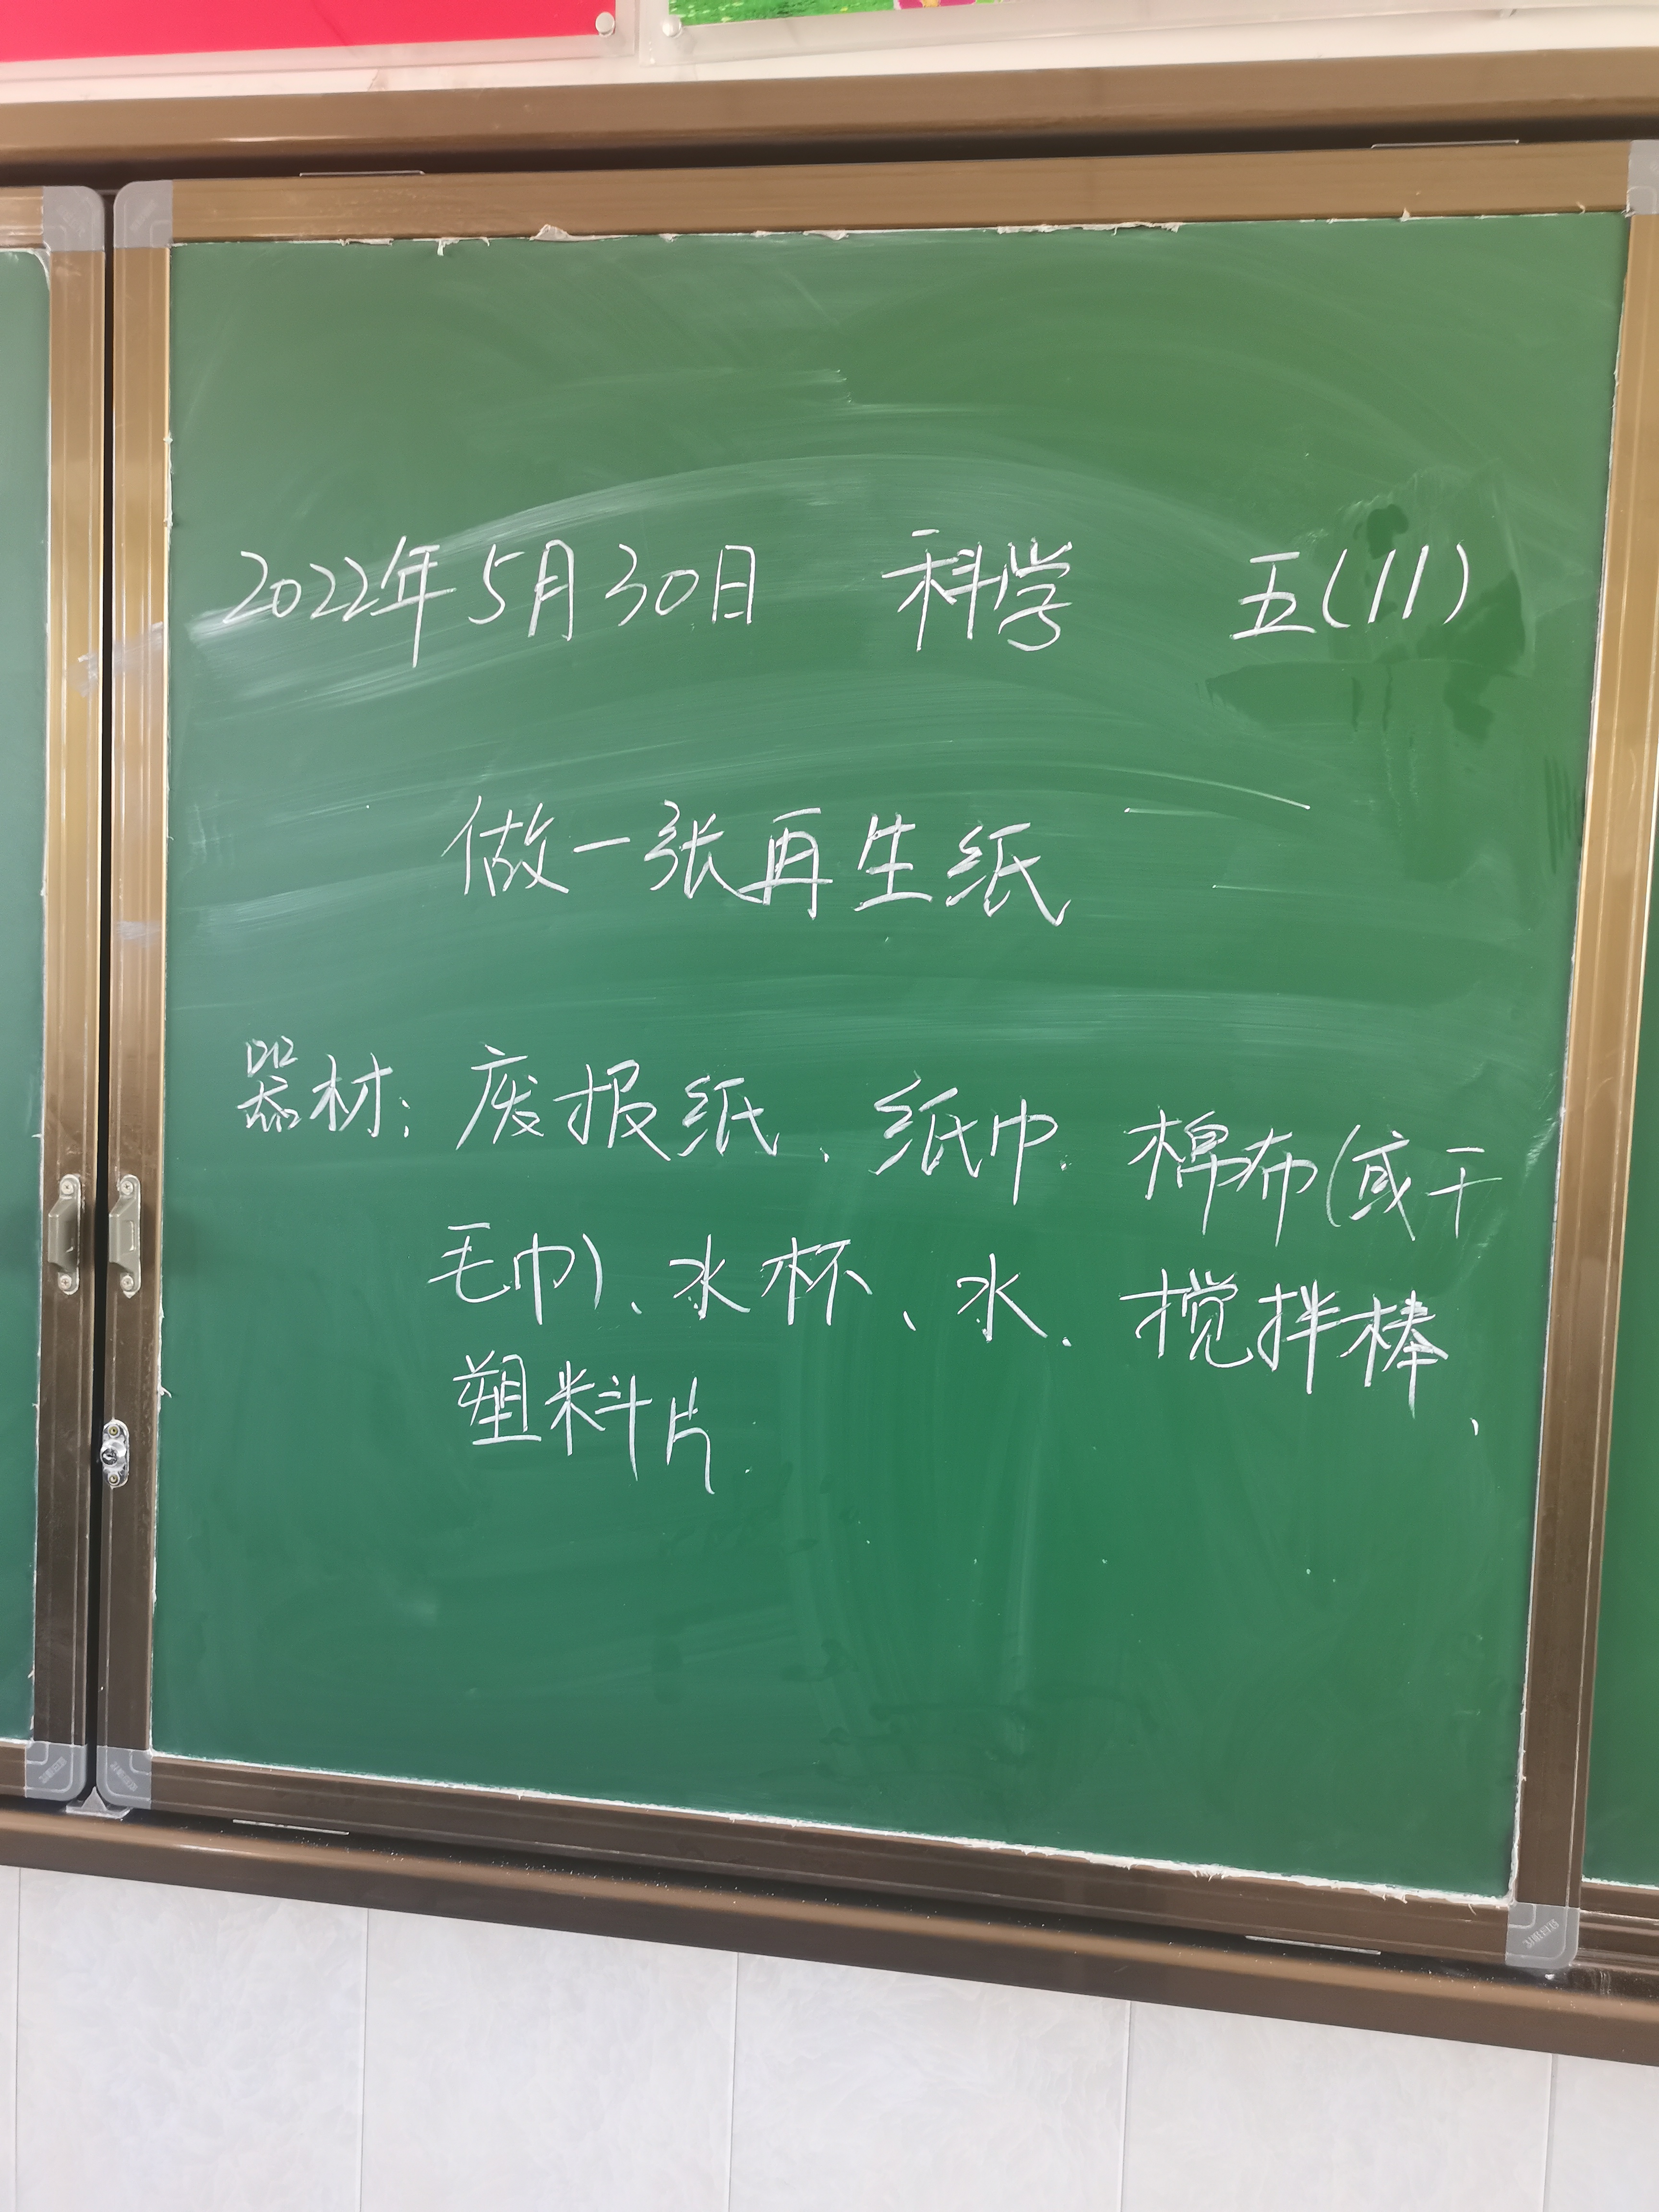 2022年5月30日 科学 五(11)
做一张再生纸
器材：废报纸、纸巾、棉布(或干
毛巾)、水杯、水、搅拌棒、
塑料片.